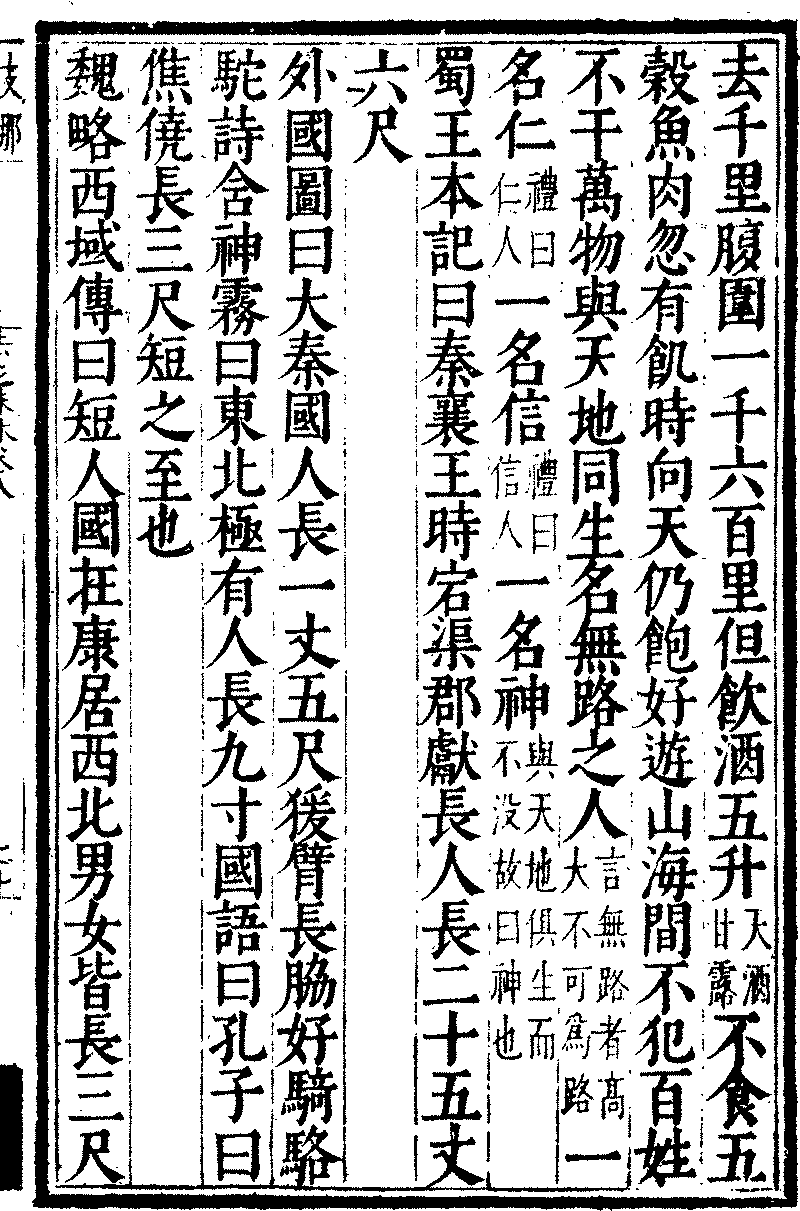 去千里腹圍一千六百里但飲酒五升天酒甘露不食五
糓魚肉忽有飢時向天仍飽好遊山海間不犯百姓
不干萬物與天地同生名無路之人言無路者髙大不可爲路一
名仁禮曰仁人一名信禮曰信人一名神與天地俱生而不没故曰神也
蜀王本記曰秦襄王時宕渠郡獻長人長二十五丈
六尺
外國圖曰大秦國人長一丈五尺猨臂長脇好騎駱
駝詩含神霧曰東北極有人長九寸國語曰孔子曰
焦僥長三尺短之至也
魏略西域傳曰短人國在康居西北男女皆長三尺